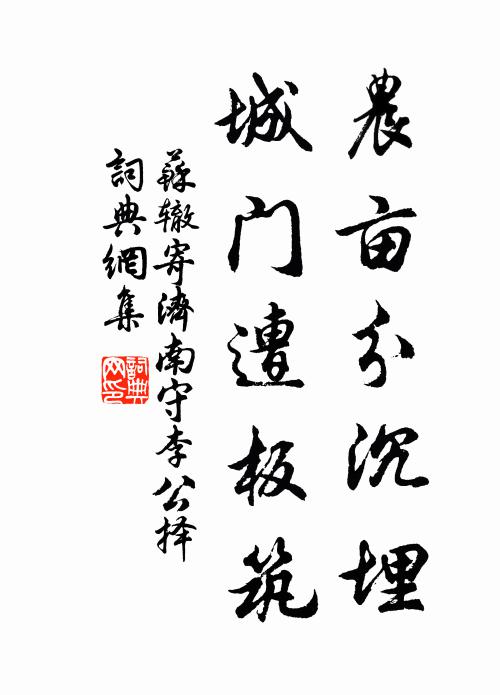 農亩分沉埋
城门遭板筑
蘇辙寄濟南守李公择
詞典網集
詞典网印